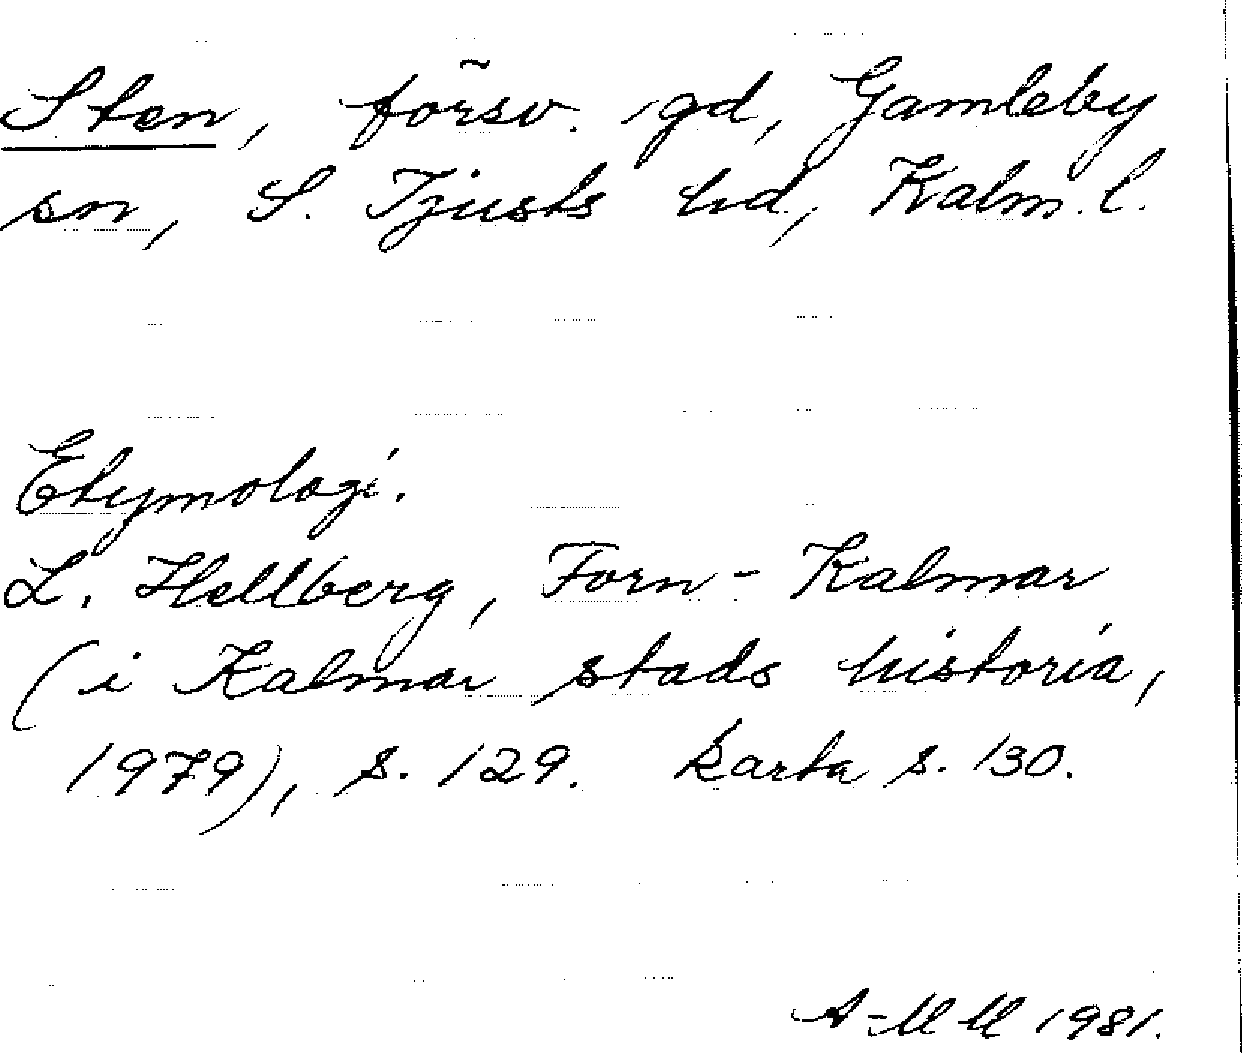 Sten, försv. gd, Gamleby
sn, S. Tjusts hd, Kalm. l.
Etymologi.
L. Hellberg, Forn-Kalmar
(i Kalmar stads historia,
1979), s. 129. Karta s. 130.
A-MM 1981.